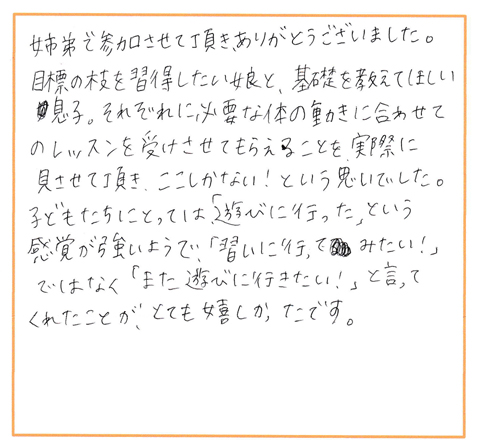 姉弟で参加させて頂きありがとうございました。
目標の枝を習得したい娘と、基礎を教えてほしい
息子。それぞれに必要な体の動きに合わせて
のレッスンを受けさせてもらえることを実際に
見させて頂き、ここしかない！という思いでした。
子どもたちにとっては「遊びに行った」という
感覚が強いようで、「習いに行ってみたい！」
ではなく「また遊びに行きたい！」と言って
くれたことが、とても嬉しかったです。